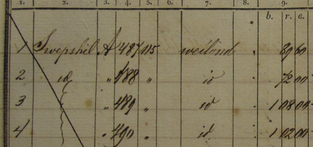 1. 2. 3. 4. 5. 6. 7. 8. 9.
b. r. a.
1 A 487 115 weiland 39 80
2 id " 488 " id 72 00
3 " 489 " id 1 08 00
4 " 490 " id 1 02 00